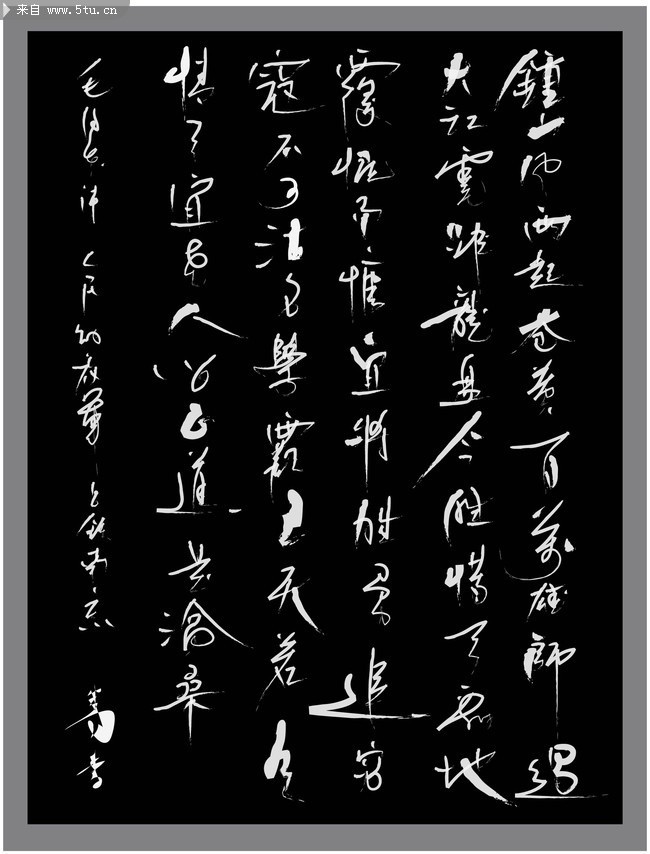 来自 www.5tu.cn
鍾山风雨起苍黄百萬雄師過
大江虎踞龍盘今胜惜天翻地
覆慨而慷宜將胜勇追穷
寇不可沽名學霸王天若有
情天宜老人间正道是滄桑
毛泽东诗 人民解放军占领南京
書